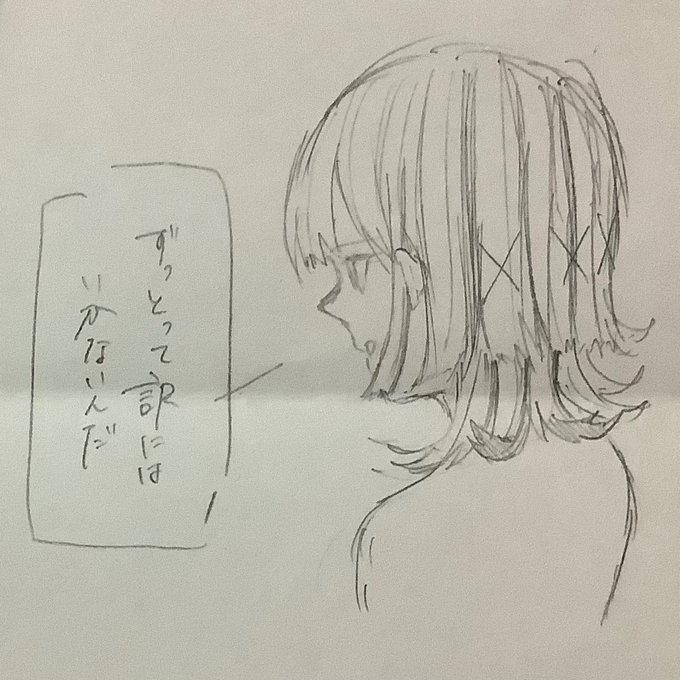 ずっとって訳には
いかないんだ